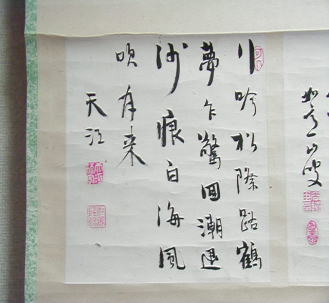 行吟松際路鶴
夢乍驚回潮退
沙痕白海風
吹月来
天江